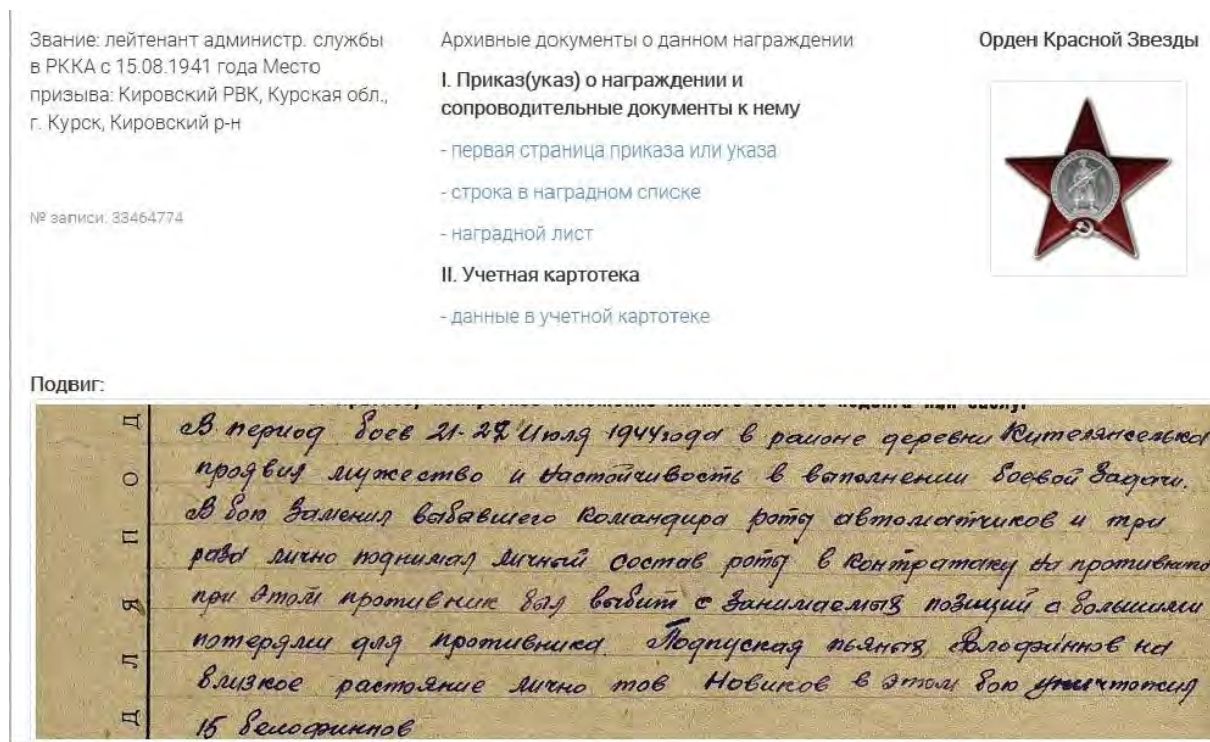 Звание: лейтенант администр. службы
в РККА с 15.08.1941 года Место
призыва: Кировский РВК, Курская обл.,
г. Курск, Кировский р-н
№ записи: 33464774
Архивные документы о данном награждении
I. Приказ(указ) о награждении и
сопроводительные документы к нему
- первая страница приказа или указа
- строка в наградном списке
- наградной лист
II. Учетная картотека
- данные в учетной картотеке
Орден Красной Звезды
Подвиг:
Д Л Я П О Д
В период боев 21-27 Июля 1944 года в районе деревни Кителянселькя
проявил мужество и настойчивость в выполнении боевой задачи.
В бою заменил выбывшего командира роты автоматчиков и три
раза лично поднимал личный состав роты в контратаку на противника
при этом противник был выбит с занимаемых позиций с большими
потерями для противника. Подпуская пьяных белофиннов на
близкое растояние лично тов Новиков в этом бою уничтожил
15 белофиннов